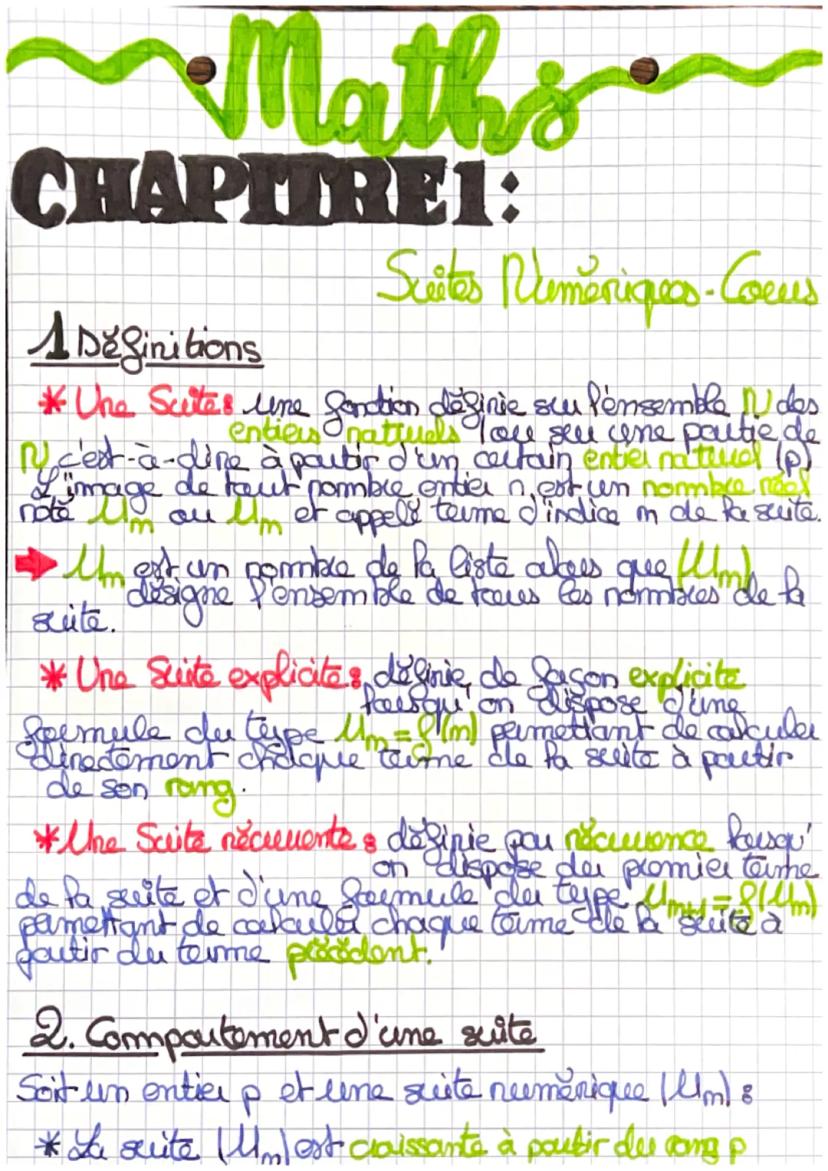 Maths
CHAPITRE 1:
Suites Numériques - Cours
1 Définitions
* Une Suite: une fonction définie sur l'ensemble N des
entiers naturels (ou sur une partie de
N, c'est-à-dire à partir d'un certain entier naturel (p)
L'image de tout nombre entier n, est un nombre réel
noté Un ou Un et appelé terme d'indice n de la suite.
➡ Un est un nombre de la liste alors que (Un)
désigne l'ensemble de tous les nombres de la
suite.
* Une Suite explicite: définie de façon explicite
lorsqu'on dispose d'une
formule du type Un = f(n) permettant de calculer
directement chaque terme de la suite à partir
de son rang.
* Une Suite récurrente: définie par récurrence lorsqu'
on dispose du premier terme
de la suite et d'une formule du type Un+1 = f(Un)
permettant de calculer chaque terme de la suite à
partir du terme précédent.
2. Comportement d'une suite
Soit un entier p et une suite numérique (Un):
* La suite (Un) est croissante à partir du rang p